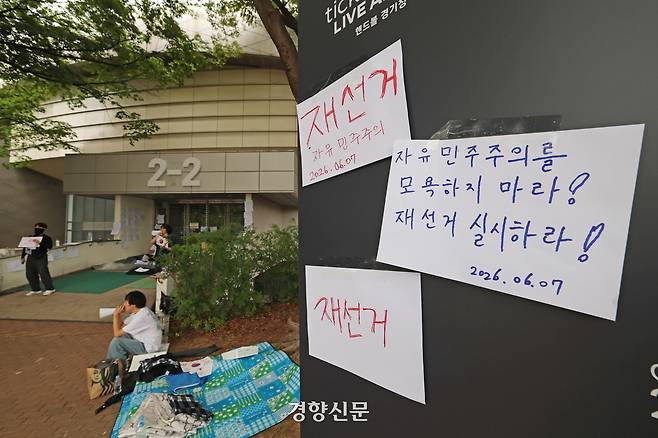 2-2
LIVE A
핸드볼 경기장
재선거
자유 민주주의
2026.06.07
자유 민주주의를
모욕하지 마라?
재선거 실시하라!
2026.06.07
재선거
경향신문